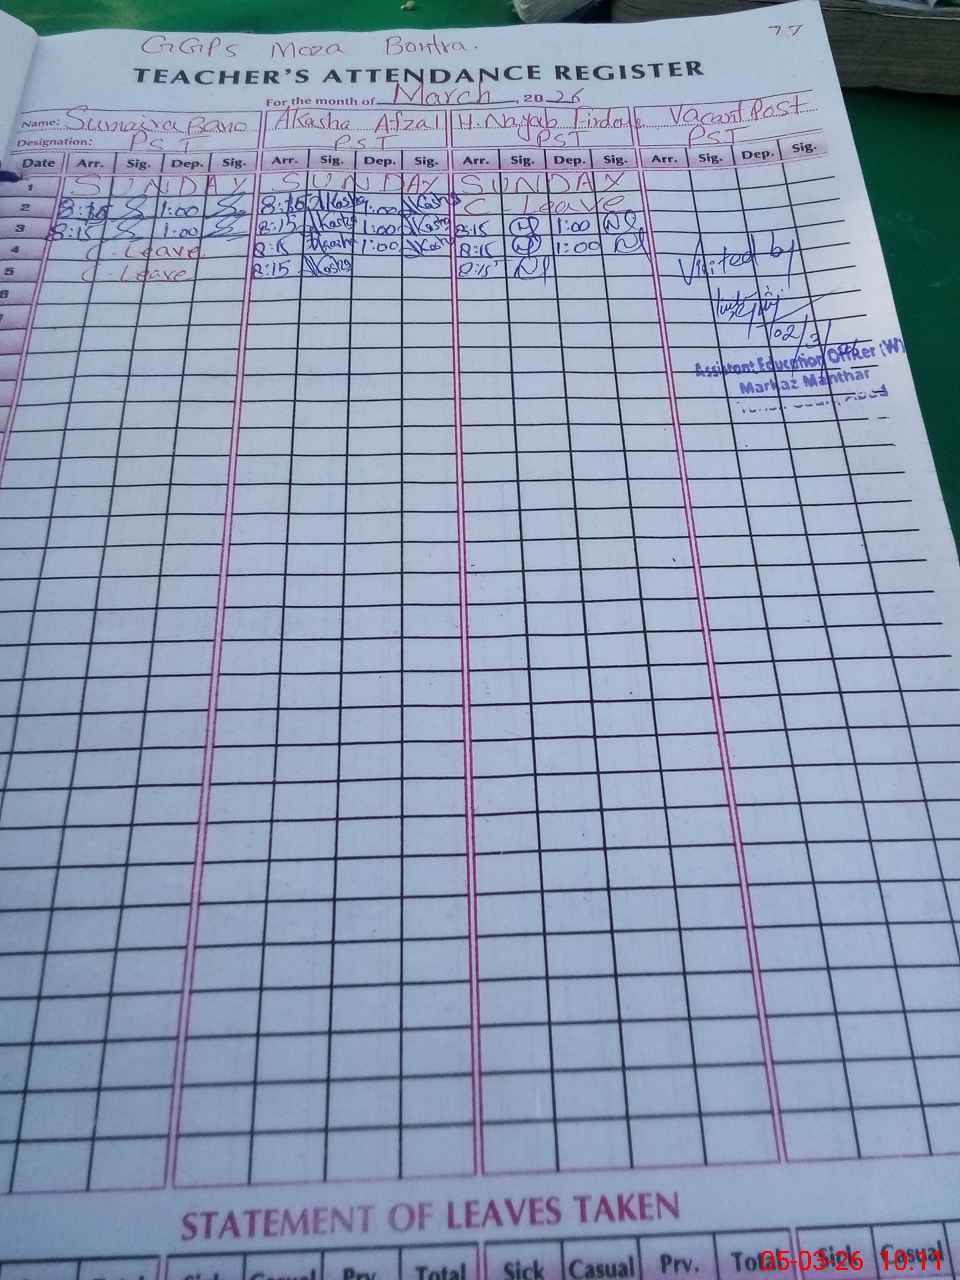 77
GGPS Moza Bontra.
TEACHER'S ATTENDANCE REGISTER
For the month of March, 2026
Name: Sumaira Bano Akasha Afzal H. Nayab Firdos Vacant Post
Designation: PST PST PST PST
Date Arr. Sig. Dep. Sig. Arr. Sig. Dep. Sig. Arr. Sig. Dep. Sig. Arr. Sig. Dep. Sig.
1 SUNDAY SUNDAY SUNDAY
2 1:00 Akasha 1:00 Akasha C Leave
3 8:15 1:00 8:15 Akasha 1:00 Akasha 8:15 1:00
4 C. Leave 8:15 Akasha 1:00 Akasha 8:15 1:00
5 C. Leave 8:15 Akasha 8:15
6
Visited by
02/3/
Assistant Education Officer (W)
Markaz Manthar
STATEMENT OF LEAVES TAKEN
Sick Casual Prv. Total Sick Casual Prv. Total Sick Casual
05-03-26 10:11